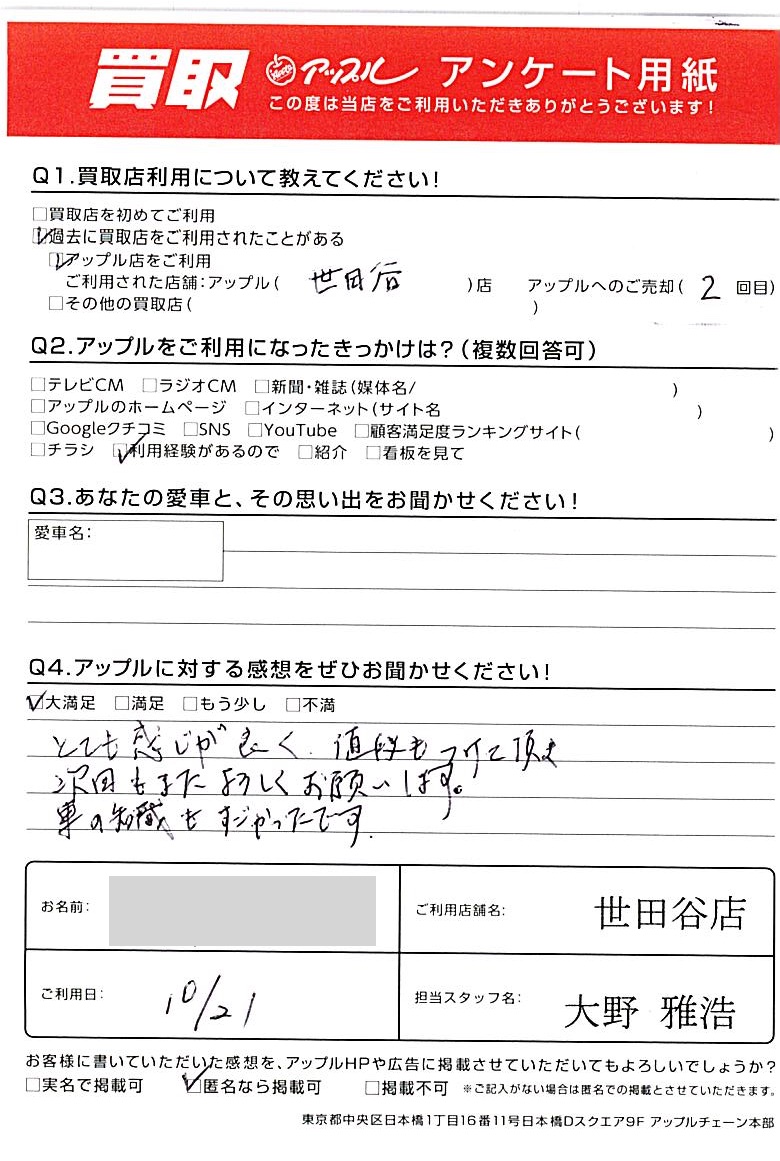 買取 アップル アンケート用紙
この度は当店をご利用いただきありがとうございます!
Q1.買取店利用について教えてください!
□買取店を初めてご利用
☑過去に買取店をご利用されたことがある
☑アップル店をご利用
ご利用された店舗:アップル( 世田谷 )店 アップルへのご売却( 2 回目)
□その他の買取店( )
Q2.アップルをご利用になったきっかけは?(複数回答可)
□テレビCM □ラジオCM □新聞・雑誌(媒体名/ )
□アップルのホームページ □インターネット(サイト名 )
□Googleクチコミ □SNS □YouTube □顧客満足度ランキングサイト( )
□チラシ ☑利用経験があるので □紹介 □看板を見て
Q3.あなたの愛車と、その思い出をお聞かせください!
愛車名:
Q4.アップルに対する感想をぜひお聞かせください!
☑大満足 □満足 □もう少し □不満
とても感じが良く、値段もつけて頂き
次回もまたよろしくお願いします。
車の知識もすごかったです。
お名前:
ご利用店舗名: 世田谷店
ご利用日: 10/21
担当スタッフ名: 大野 雅浩
お客様に書いていただいた感想を、アップルHPや広告に掲載させていただいてもよろしいでしょうか?
□実名で掲載可 ☑匿名なら掲載可 □掲載不可 ※ご記入がない場合は匿名での掲載とさせていただきます。
東京都中央区日本橋1丁目16番11号日本橋Dスクエア9F アップルチェーン本部